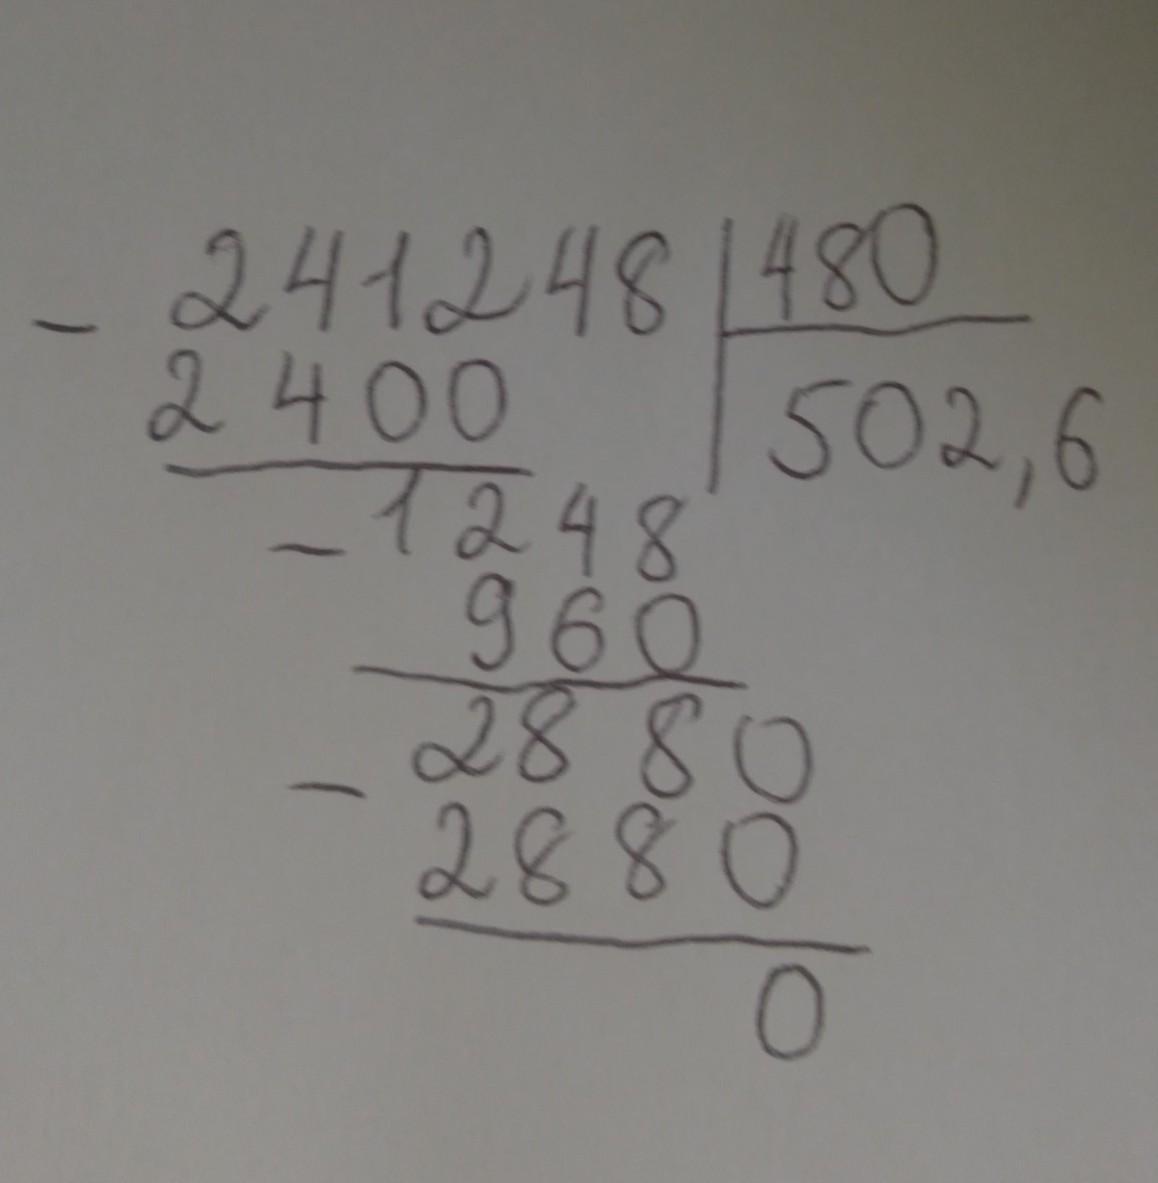 - 241248 | 480
2400 502,6
- 1248
960
- 2880
2880
0